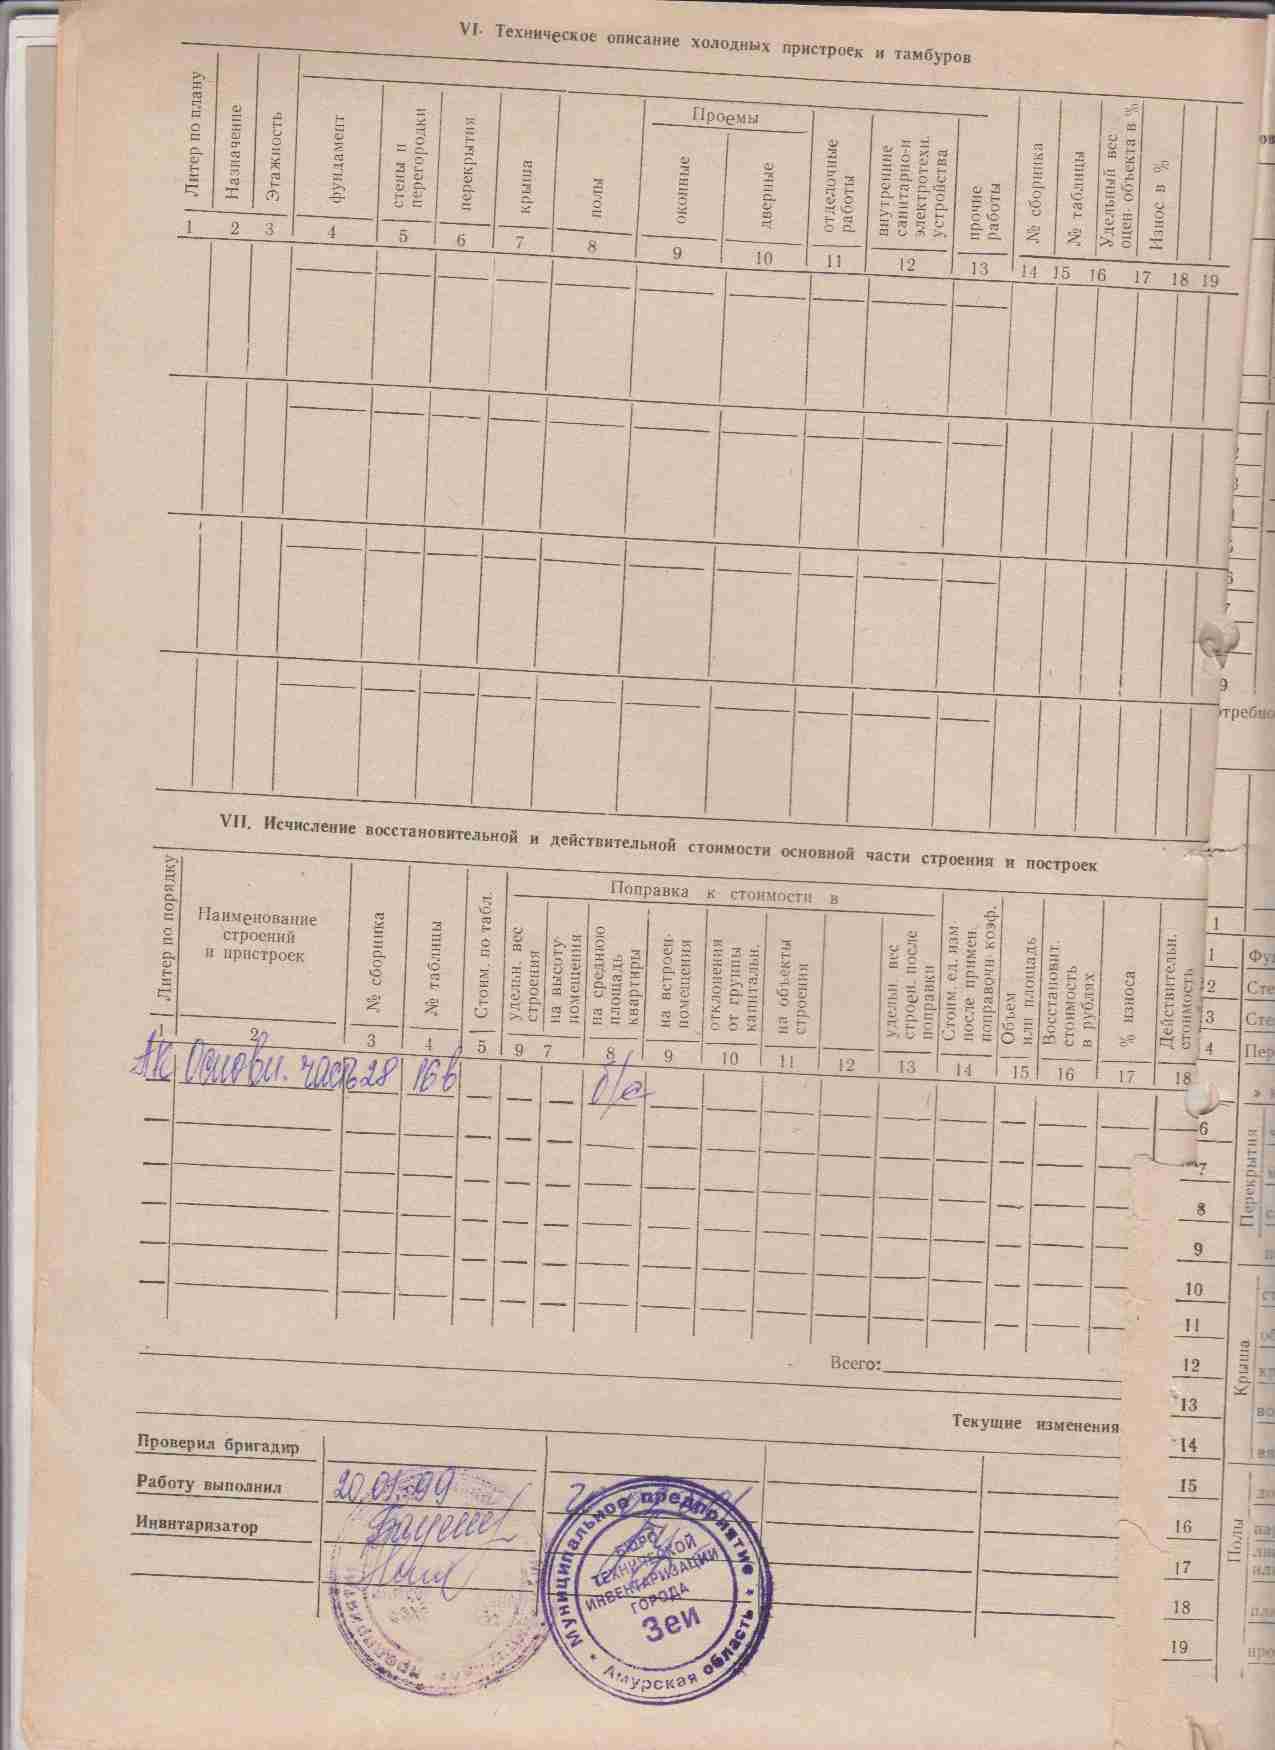 VI. Техническое описание холодных пристроек и тамбуров
Литер по плану
Назначение
Этажность
фундамент
стены и перегородки
перекрытия
крыша
полы
Проемы
оконные
дверные
отделочные работы
внутренние санитарно-и электротехн. устройства
прочие работы
№ сборника
№ таблицы
Удельный вес оцен. объекта в %
Износ в %
1 2 3 4 5 6 7 8 9 10 11 12 13 14 15 16 17 18 19
VII. Исчисление восстановительной и действительной стоимости основной части строения и построек
Литер по порядку
Наименование
строений
и пристроек
№ сборника
№ таблицы
Стоим. по табл.
Поправка к стоимости в
удельн. вес строения
на высоту помещения
на среднюю площадь квартиры
на встроен. помещения
отклонения от группы капитальн.
на объекты строения
удельн. вес строен. после поправки
Стоим. ед. изм. после примен. поправочн. коэф.
Объем или площадь
Восстановит. стоимость в рублях
% износа
Действительн. стоимость
1 2 3 4 5 9 7 8 9 10 11 12 13 14 15 16 17 18
АК Основн. часть 28 16в б/с
Всего:
Текущие изменения
Проверил бригадир
Работу выполнил 20.01.99
Инвнтаризатор
Муниципальное предприятие
БЮРО
ТЕХНИЧЕСКОЙ
ИНВЕНТАРИЗАЦИИ
ГОРОДА
Зеи
Амурская область
9
отребно
1
1 Фун
2 Сте
3 Сте
4 Пер
6
7
8
9
10
11
12
13
14
15
16
17
18
19
Перекрытия
Крыша
Полы